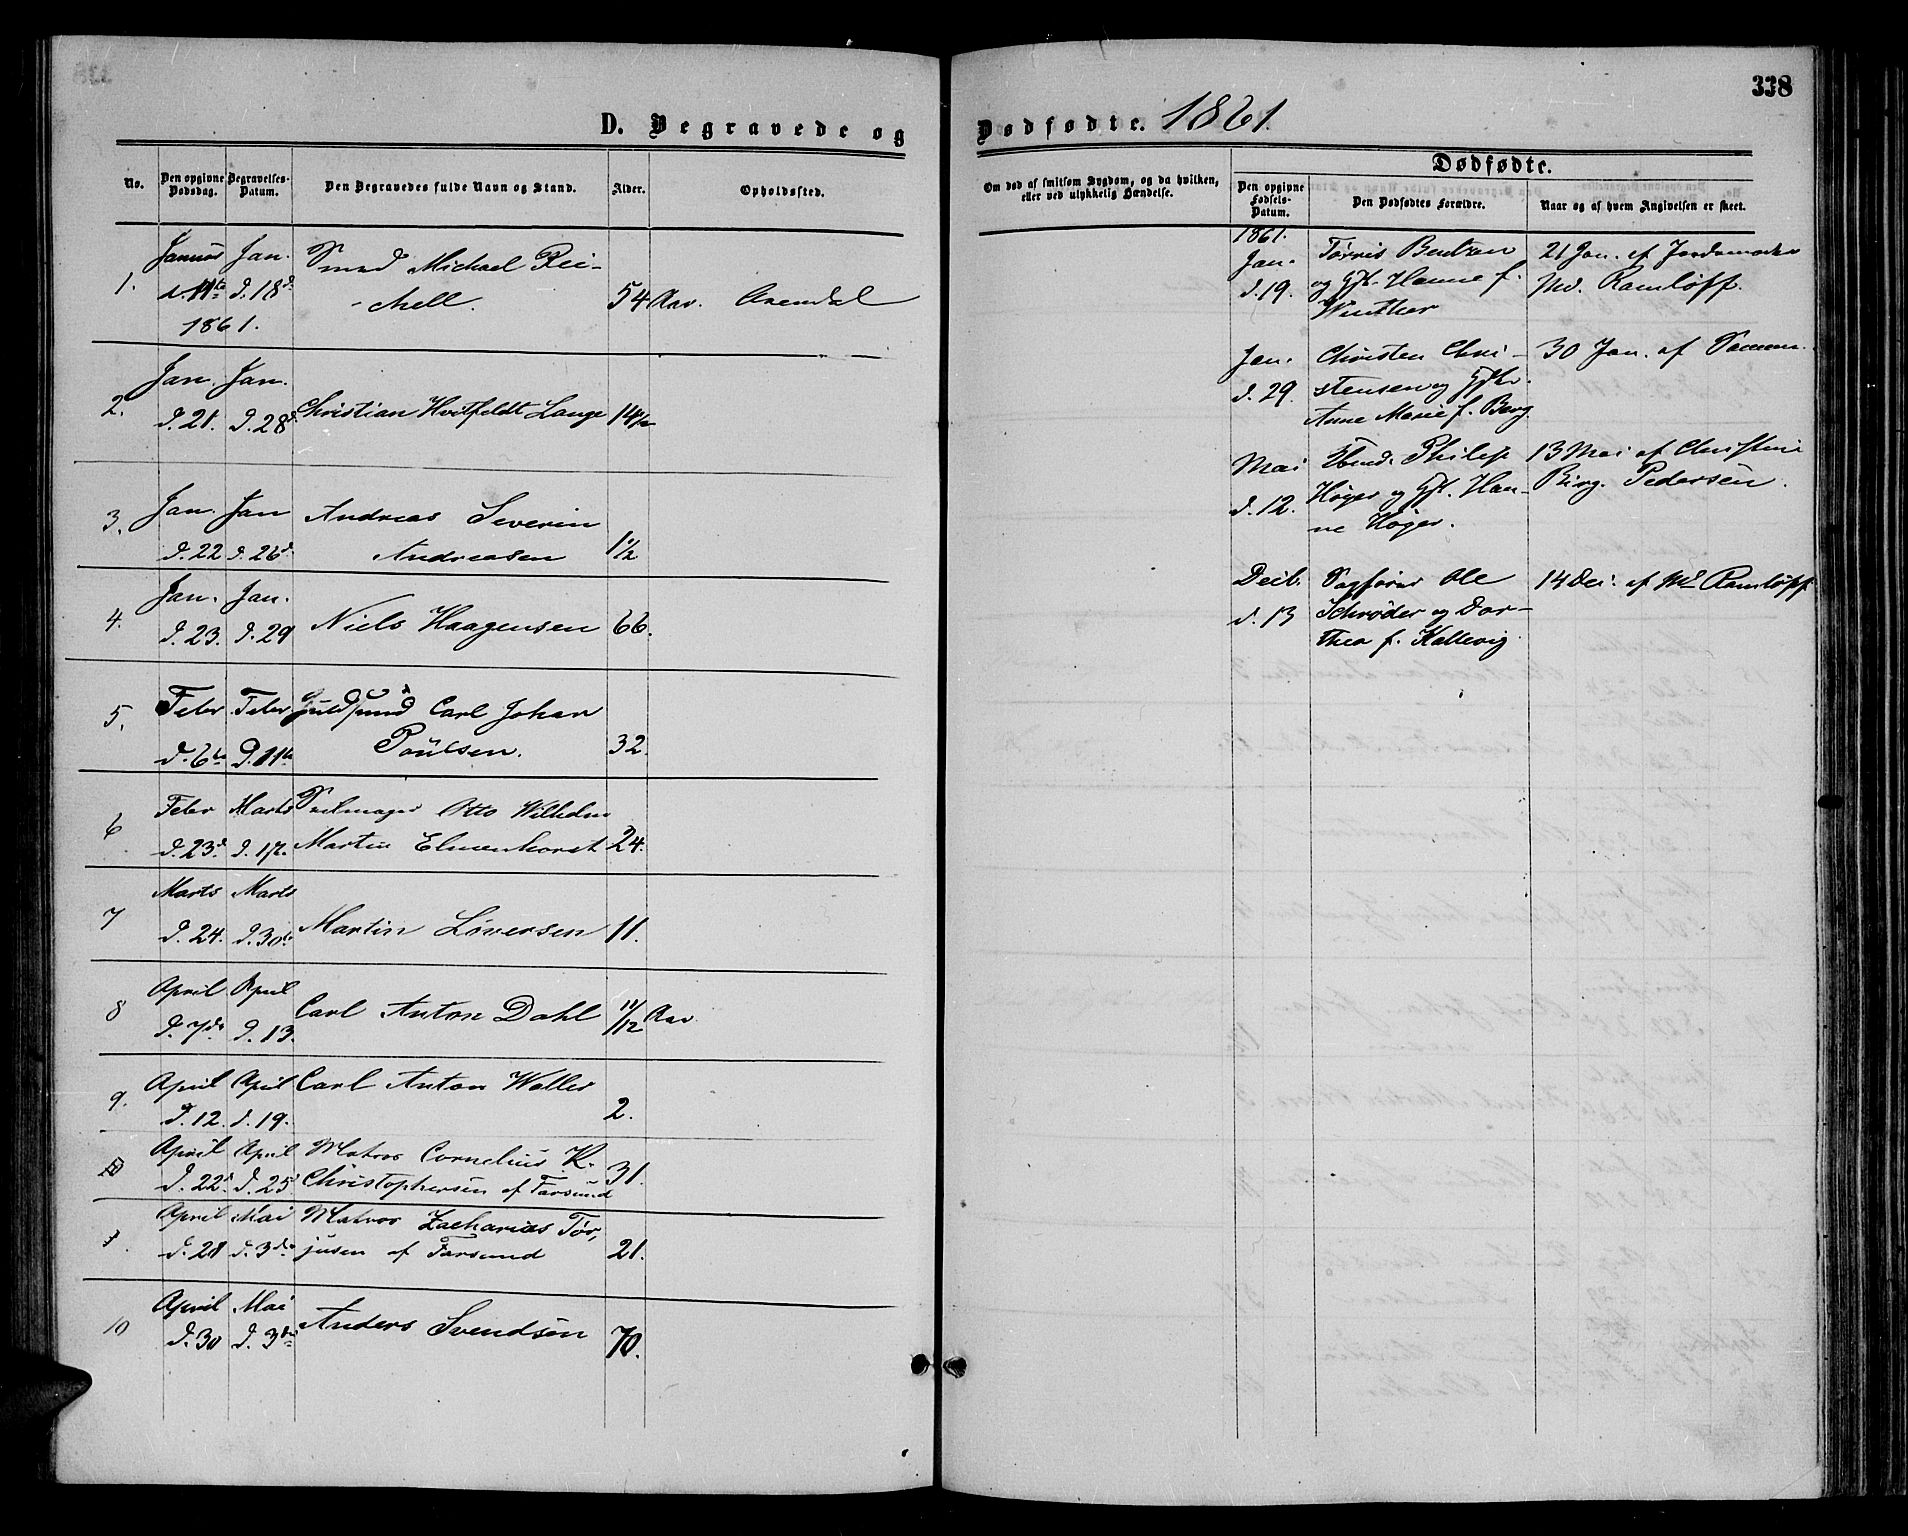 338
D. Begravede og
Dødfødte. 1861.
No.
Den opgivne Dødsdag.
Begravelses-Datum.
Den Begravedes fulde Navn og Stand.
Alder.
Opholdssted.
Om død af smitsom Sygdom, og da hvilken, eller ved ulykkelig Hændelse.
Dødfødte.
Den opgivne Fødsels-Datum.
Den Dødfødtes Forældre.
Naar og af hvem Angivelsen er skeet.
1. Januar Jan. Smed Michael Rei-
d. 11te d. 18d. -chell. 54 Aar. Arendal
1861.
2. Jan. Jan.
d. 21. d. 28d. Christian Hvitfeldt Lange 14½
3. Jan. Jan Andreas Severin
d. 22 d. 26d. Andreasen 1½
4. Jan. Jan.
d. 23. d. 29 Niels Haagensen 66.
5. Febr Febr Guldsmd Carl Johan
d. 6te d. 11te Poülsen. 32.
6 Febr Marts Otto Wilhelm
d. 23d. d. 1ste Martin Elmenhorst 24.
7 Marts Marts
d. 24. d. 30te Martin Löversen 11.
8 April April
d. 7de d. 13. Carl Anton Dahl 11/12 Aar
9. April April Carl Anton Weller
d. 12. d. 19. 2.
April April Matros Cornelius K.
d. 22d. d. 25 Christophersen af Farsund 31.
April Mai Matros Zacharias Tør,
d. 28 d. 3die jusen af Farsund 21.
10 April Mai
d. 30 d. 3die Anders Svendsen 70.
1861.
Jan. Tørris Bentzen 21 Jan. af Jordemoder
d. 19. og Hft. Hanne f. Md. Ramløff.
Winther
Jan. Christen Chri- 30 Jan. af Samme.
d. 29. stensen og Hft.
Anne Marie f. Berg.
Mai Philip 13 Mai af Christine
d. 12. Høyer og Hft. Han- Birg. Pedersen.
ne Høyer.
Decb. Sagfører Ole 14 Dec. af Md. Ramløff
d. 13 Schrøder og Dor-
thea f. Kallevig.